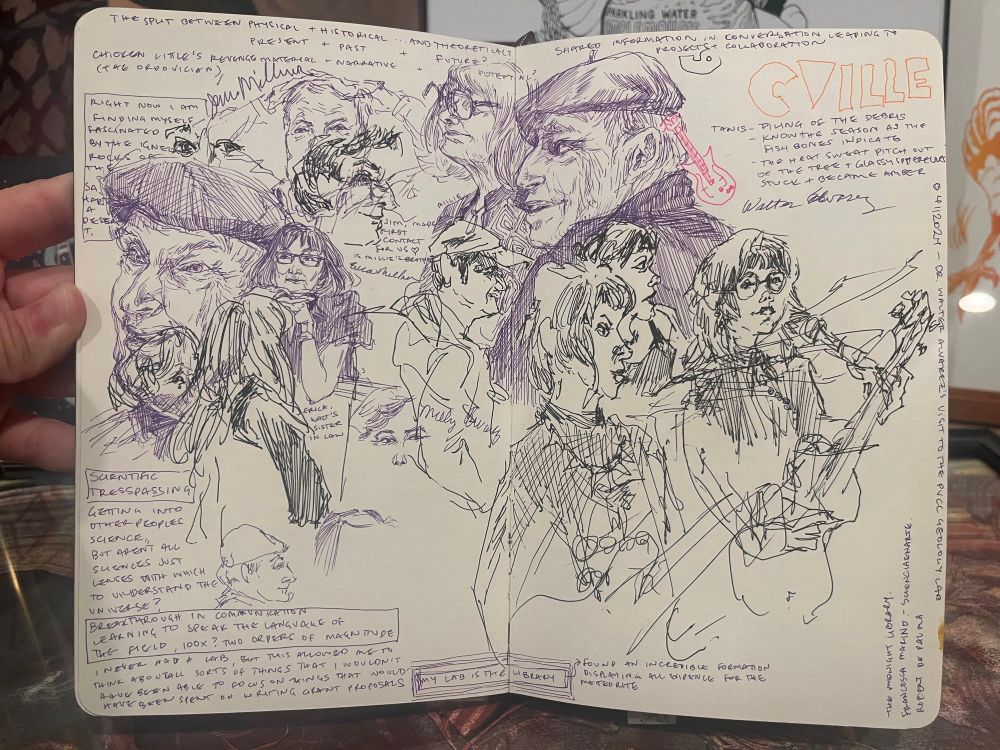 THE SPLIT BETWEEN PHYSICAL + HISTORICAL ... AND THEORETICAL?
PRESENT + PAST + FUTURE?
CHICKEN LITTLE'S REVENGE MATERIAL + NARRATIVE + POTENTIAL?
(THE ORDOVICIAN)
RIGHT NOW I AM
FINDING MYSELF
FASCINATED
BY THE IGNE
ROCKS OF
THE
SA
HART
A
DESER
T.
JIM MADE
FIRST
CONTACT
FOR US ♡
IS MILLIE'S
ERICA,
WALT'S
SISTER
IN LAW
Milly Alvarez
SCIENTIFIC
TRESSPASSING
GETTING INTO
OTHER PEOPLES
SCIENCE,
BUT AREN'T ALL
SCIENCES JUST
LENCES WITH WHICH
TO UNDERSTAND THE
UNIVERSE?
BREAKTHROUGH IN COMMUNICATION
LEARNING TO SPEAK THE LANGUAGE OF
THE FIELD, 100X? TWO ORDERS OF MAGNITUDE
I NEVER HAD A LAB, BUT THIS ALLOWED ME TO
THINK ABOUT ALL SORTS OF THINGS THAT I WOULDN'T
HAVE BEEN ABLE TO FOCUS ON THINGS THAT WOULD
HAVE BEEN SPENT ON WRITING GRANT PROPOSALS
MY LAB IS THE LIBRARY
SPARKLING WATER
SHARED INFORMATION IN CONVERSATION LEADING TO
PROJECTS + COLLABORATION
CVILLE
TANIS - PILING OF THE DEBRIS
- KNOW THE SEASON AS THE
FISH BONES INDICATE
- THE HEAT SWEAT PITCH OUT
OF THE TREE + GLASSY SPHERULES
STUCK + BECAME AMBER
Walter Alvarez
04112024 - DR WALTER ALVAREZ'S VISIT TO THE PVCC GEOLOGY LAB
FOUND AN INCREDIBLE FORMATION
DISPLAYING ALL EVIDENCE FOR THE
METEORITE
- THE MIDNIGHT LIBRARY.
FRANCESCA MARINO - SCIENCIAENARTE.
ROBERT DE PALMA